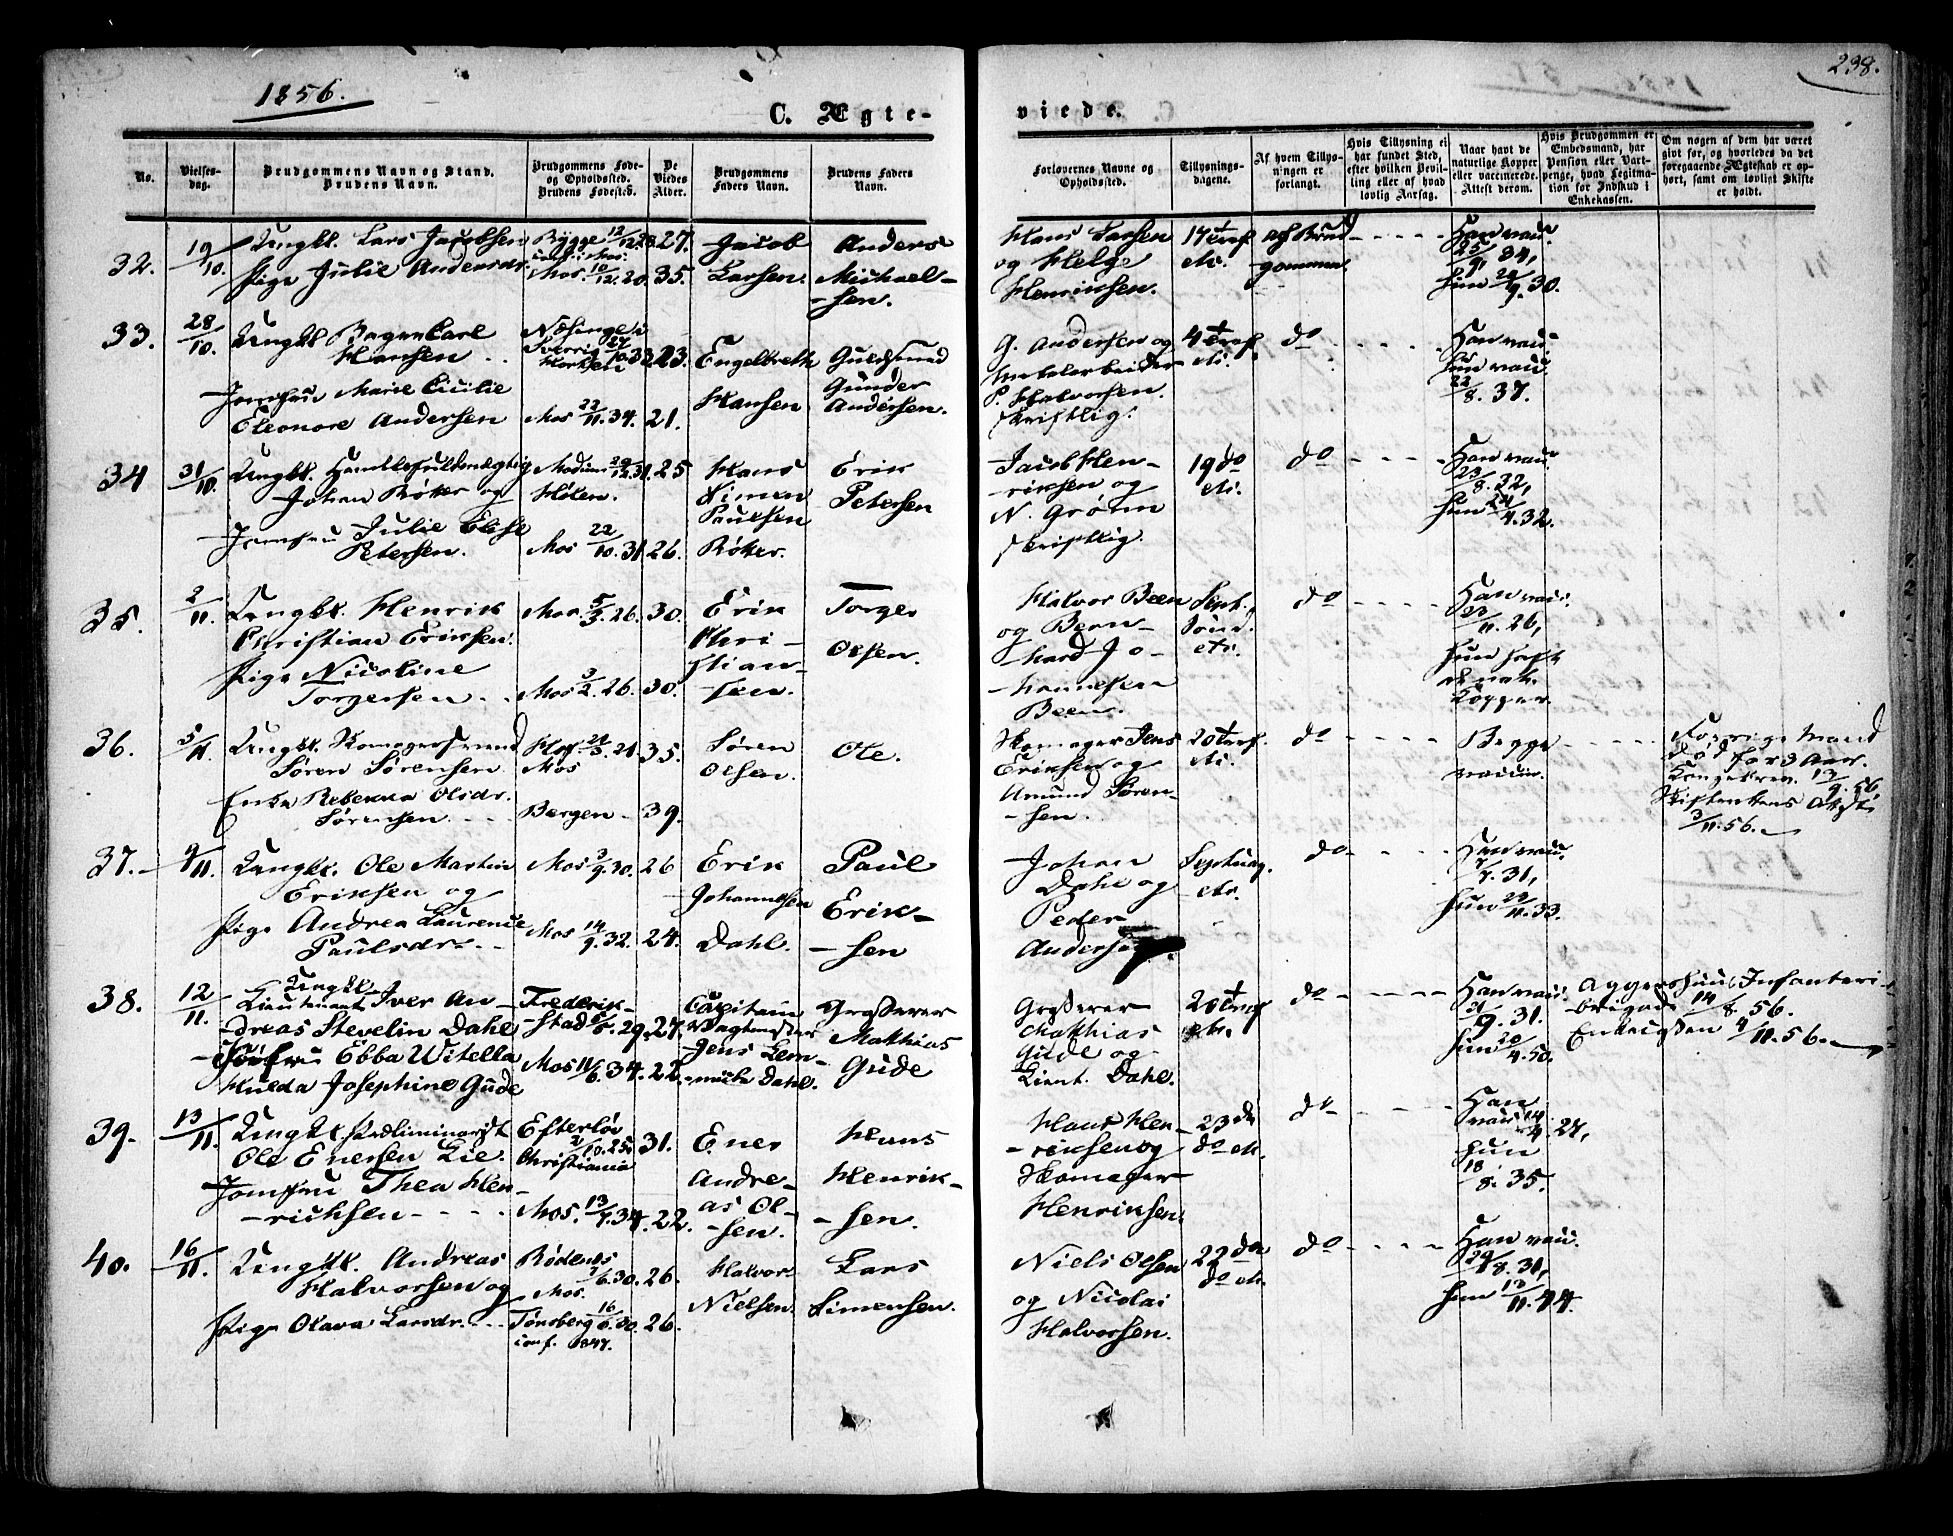 1856.
238.
C. Ægte-
viede.
No.
Vielses-
dag.
Brudgommens Navn og Stand.
Brudens Navn.
Brudgommens Føde-
og Opholdssted.
Brudens Fødested.
De
Viedes
Alder.
Brudgommens
Faders Navn.
Brudens Faders
Navn.
Forlovernes Navne og
Opholdssted.
Tillysnings-
dagene.
Af hvem Tillys-
ningen er
forlangt.
Hvis Tillysning ei
har fundet Sted,
efter hvilken Bevil-
ling eller af hvad
lovlig Aarsag.
Naar havt de
naturlige Kopper
eller vaccinerede.
Attest derom.
Hvis Brudgommen er
Embedsmand, har
Pension eller Vart-
penge, hvad Legitima-
tion for Indskud i
Enkekassen.
Om nogen af dem har været
gift før, og hvorledes da det
foregaaende Ægteskab er op-
hørt, samt om lovligt Skifte
er holdt.
32.
19/10.
Ungkl. Lars Jacobsen
Pige Julie Andersdr.
Rygge 12/12.28.
Mos. 10/12.20.
27.
35.
Jacob
Larsen.
Anders
Michael-
sen.
Hans Larsen
og Helge
Henriksen.
17 Tref.
etc.
af Brud-
gommen.
Han vacc.
25/9. 34,
hun 24/9.30.
33.
28/10.
Ungkl Bager Carl
Hansen
Jomfru Marie Cicilie
Eleonore Andersen
Mos 22/11.34.
23.
21.
Engelbreth
Hansen
Guldsmed
Gunder
Andersen.
G. Andersen og
P. Halvorsen.
skriftlig.
4 Tref.
etc.
do
Han vacc.
hun vacc.
22/8. 37.
34
31/10.
Ungkl. Handelsfuldmægtig
Johan Røker og
Jomfru Julie Elise
Petersen.
Modum 20/12.31.
Hølen.
Mos 22/10.31.
25
26.
Hans
Simen
Paulsen
Røker.
Erik
Petersen
Jacob Hen-
riksen og
N. Grønn
skriftlig.
19 do
etc.
do
Han vacc.
23/8.32,
hun 24/4.32.
35.
2/11.
Ungkl. Henrik
Christian Eriksen.
Pige Nicoline
Torgersen.
Mos 5/3.26.
Mos 3/2.26.
30.
30.
Erik
Chri-
stian-
sen.
Torger
Olsen.
Halvor Been
og Bern-
hard Jo-
hannesen
Been.
Sept.
Sønd.
etc.
do
Han vacc.
23/11.26,
hun haft
de nat.
Kopper.
36.
5/11.
Ungkl. Skomagersvend
Søren Sørensen
Enke Rebekka Olsdr.
Sørensen.
Mos
Bergen
35.
39.
Søren
Olsen.
Ole.
Skomager Jens
Eriksen og
Amund Søren-
sen.
20 Tref.
etc.
do
Begge
vaccin.
Forrige Mand
død for 3 Aar.
13/9.56
Skiftenkens Attst:
3/11.56.
37.
9/11.
Ungkl. Ole Martin
Eriksen og
Pige Andrea Laurence
Paulsdr.
Mos 3/9.30.
Mos 14/9.32.
26
24.
Erik
Johannesen
Dahl.
Paul
Erik-
sen
Johan
Dahl og
Peder
Andersen.
Septuag.
etc.
do
Han vacc.
7/7.31,
hun 23/11.33.
38.
12/11.
Ungkl.
Lieutnant Iver An-
dreas Stevelin Dahl
Jomfru Ebba Witella
Hulda Josephine Gude
Frederik-
stad 29.
Mos 11/6.34.
27.
22.
Capitain
Vagtmester
Jens Lem-
mich Dahl.
Grosserer
Mathias
Gude
Grosserer
Matthias
Gude og
Lieut. Dahl.
20 Tref
etc.
do
Han vacc.
21/9.31.
hun 20/4.50.
Aggershuus Infanteri-
brigade 14/8.56.
Enkecassen 4/11.56.
39.
13/11.
Ungkl. Præliminarist
Ole Enersen Lie.
Jomfru Thea Hen-
richsen
Efterløv
2/10.25
Christiania
Mos. 13/7.34.
31.
22.
Ener
Andre-
as Ol-
sen.
Hans
Henrik-
sen.
Hans Hen-
riksen og
Skomager
Henriksen.
23 do
do etc.
do
Han
vacc 14/4.27,
hun
18/8.35.
40.
16/11.
Ungkl. Andreas
Halvorsen og
Pige Olava Larsdr.
Rødenes
7/6.30.
Mos.
Tønsberg 16/6.30.
conf. 1847.
26.
26.
Halvor
Nielsen.
Lars
Simensen.
Niels Olsen
og Nicolai
Halvorsen.
22 do
do etc.
do
Han vacc.
24/8.31,
hun 13/11.44.